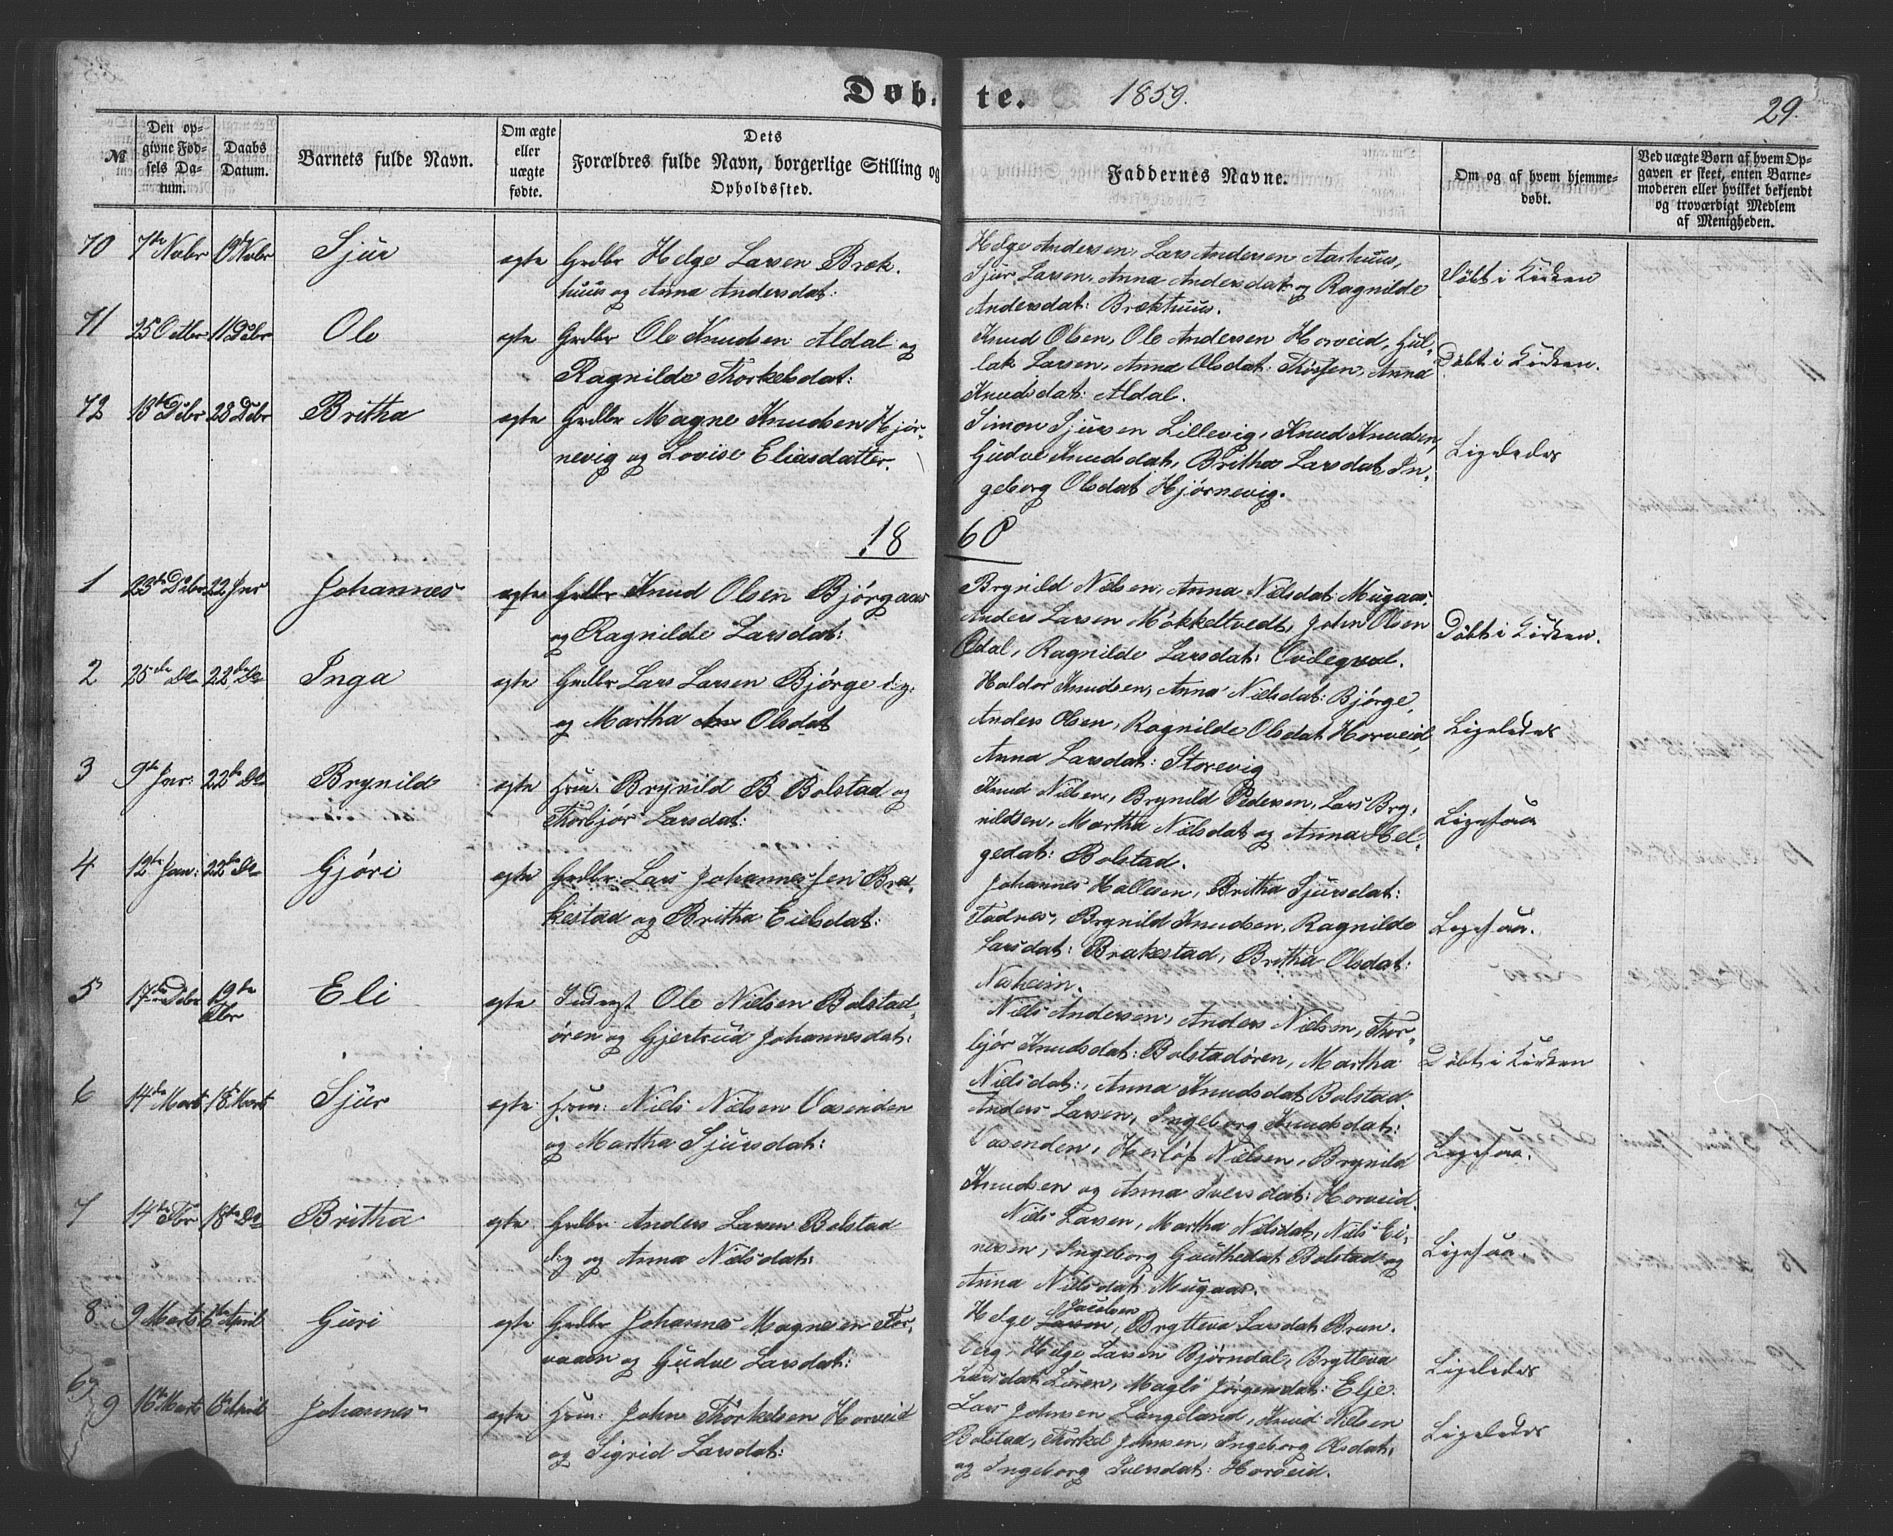 Døbte. 1859. 29.
№ | Den opgivne Fødsels Datum. | Daabs Datum. | Barnets fulde Navn. | Om ægte eller uægte fødte. | Dets Forældres fulde Navn, borgerlige Stilling og Opholdssted. | Faddernes Navne. | Om og af hvem hjemmedøbt. | Ved uægte Børn af hvem Opgaven er skeet, enten Barnemoderen eller hvilket bekjendt og troværdigt Medlem af Menigheden.
70 7de Novbr 19de Novbr Sjur ægte Grdbr Helge Larsen Bræk-
huus og Anna Andersdat:
Helge Andersen, Lars Andersen Aarhuus,
Sjur Larsen, Anna Andersdat: og Ragnilde
Andersdat: Brækhuus.
Døbt i Kirken
71 25 Octbr 11 Debr Ole ægte Grdbr Ole Knudsen Aldal og
Ragnilde Thorkelsdat:
Knud Olsen, Ole Andersen Horveid, Gul-
lak Larsen, Anna Olsdat: Anna
Knudsdat: Aldal.
Døbt i Kirken.
72 13de Debr 28 Debr Britha ægte Grdbr Magne Knudsen Hjør-
nevig og Lovise Eliasdatter.
Simon Sjursen Lillevig, Knud Knudsen,
Gudve Knudsdat, Britha Larsdat, In-
geborg Olsdat Hjørnevig.
Ligeledes
1860
1 23de Debr 22 Jnr Johannes ægte Grdbr Knud Olsen Bjørgaas
og Ragnilde Larsdat:
Brynild Nielsen, Anna Nielsdat: Mugaas,
Anders Larsen Mökkeltvedt, John Olsen
Odal, Ragnilde Larsdat:
Døbt i Kirken.
2 25de De 22de De Inga ægte Grdbr Lars Larsen Bjørge
og Martha Olsdat
Haldor Knudsen, Anna Nielsdat: Bjørge,
Anders Olsen, Ragnilde Olsdat Horveid,
Anna Larsdat: Storevig
Ligeledes
3 9de Jnr: 22de De Brynild ægte Hmd: Brynild B. Bolstad og
Thorbjør Larsdat:
Knud Nilsen, Brynild Pedersen, Lars Bry-
nildsen, Martha Nielsdat og Anna Hel-
gedat: Bolstad.
Ligesaa
4 12te Jan: 22de De Gjøri ægte Grdbr: Lars Johannessen Bra-
kestad og Britha Eielsdat:
Johannes Hallesen, Britha Sjursdat:
Fadnes, Brynild Knudsen, Ragnilde
Larsdat: Brakestad, Britha Olsdat:
Nesheim.
Ligesaa.
5 17de Debr 19de Fbr Eli ægte Inderst Ole Nielsen Bolstad-
ören og Gjertrud Johannesdat:
Niels Andersen, Anders Nielsen, Thor-
bjør Knudsdat: Bolstadören, Martha
Nielsdat:, Anna Knudsdat Bolstad.
Døbt i Kirken
6 14de Marts 18de Marts Sjur ægte Hmd: Niels Nielsen Vasenden
og Martha Sjursdat:
Anders Larsen, Ingeborg Knudsdat:
Vasenden, Herlöf Nielsen, Brynild
Knudsen og Anna Iversdat: Horveid.
Ligesaa.
7 14de Fbr 18de De Britha ægte Grdbr Anders Larsen Bolstad
og Anna Nielsdat:
Niels Larsen, Martha Nielsdat, Niels Ei-
nersen, Ingeborg Gauthedat Bolstad og
Anna Nielsdat Mugaas.
Ligesaa.
8 9 Marts 6te April Guri ægte Grdbr Johannes Magnesen For-
vaaen og Gudve Larsdat:
Helge Larsen Jacobsen, Brytteva Larsdat Brun-
berg, Helge Larsen Bjørndal, Brytteva
Larsdat Lören, Magli Jörgensdat: Elje.
Ligeledes
69
9 16 Marts 6te April Johannes ægte Hmd: John Thorkelsen Horveid
og Sigrid Larsdat:
Lars Johnsen Langeland, Knud Nielsen
Bolstad, Thorkel Johnsen, Ingeborg Olsdat:
og Ingeborg Iversdat: Horveid.
Ligeledes